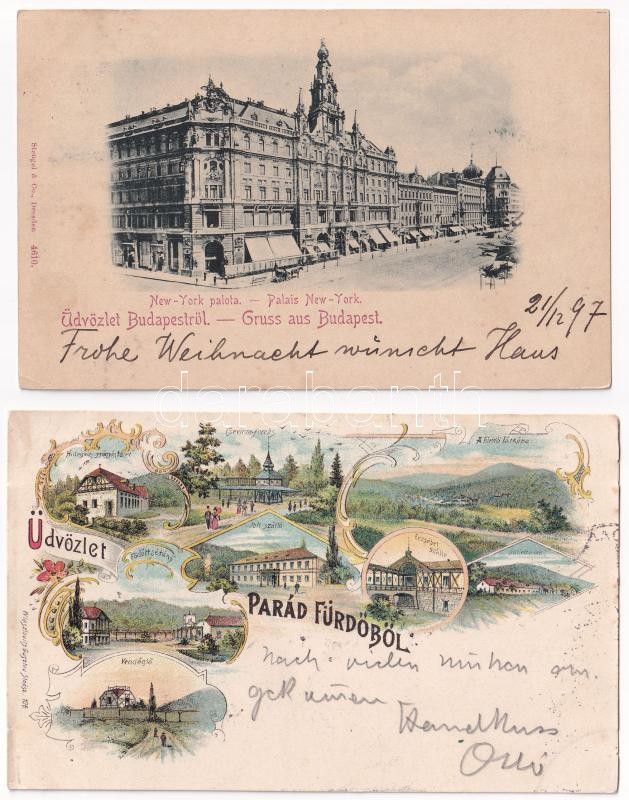 Stengel & Co., Dresden 4610.
New-York palota. — Palais New-York.
Üdvözlet Budapestről. — Gruss aus Budapest.
21/12 97
Frohe Weihnacht wünscht Hans
darabanth
Csevicze-forrás
A fürdő látképe
Üdvözlet
Erzsébet szálló
PARÁD FÜRDŐBŐL.
Vendéglő
Nach vielen Mühen an-
gekommen
Handkuss
Otto